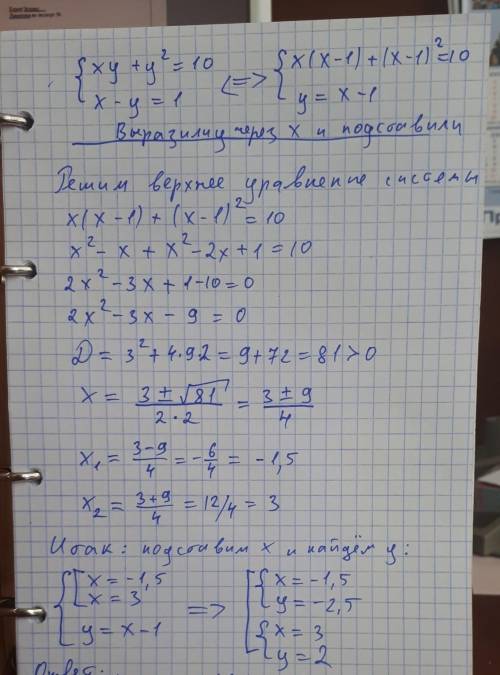 { xy + y² = 10 <=> { x(x-1) + (x-1)² = 10
x - y = 1 y = x - 1
Выразили y через x и подставили
Решим верхнее уравнение системы
x(x-1) + (x-1)² = 10
x² - x + x² - 2x + 1 = 10
2x² - 3x + 1 - 10 = 0
2x² - 3x - 9 = 0
D = 3² + 4·9·2 = 9 + 72 = 81 > 0
x = (3 ± √81)/(2·2) = (3 ± 9)/4
x₁ = (3-9)/4 = -6/4 = -1,5
x₂ = (3+9)/4 = 12/4 = 3
Итак: подставим x и найдём y:
{ [ x = -1,5 => [ { x = -1,5
x = 3 y = -2,5
y = x - 1 { x = 3
y = 2
Ответ: